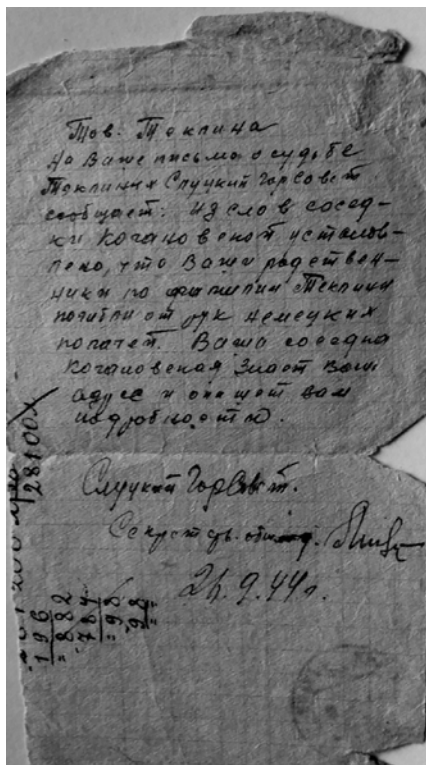 Тов. Теклина
На Ваше письмо о судьбе
Теклиных Слуцкий Горсовет
сообщает: из слов сосед-
ки Когановской установ-
лено, что Ваши родствен-
ники по фамилии Теклины
погибли от рук немецких
палачей. Ваша соседка
Когановская знает Ваш
адрес и опишет вам
подробности.
Слуцкий Горсовет.
Секретарь
24.9.44 г.
28100
196
882
784
98
98